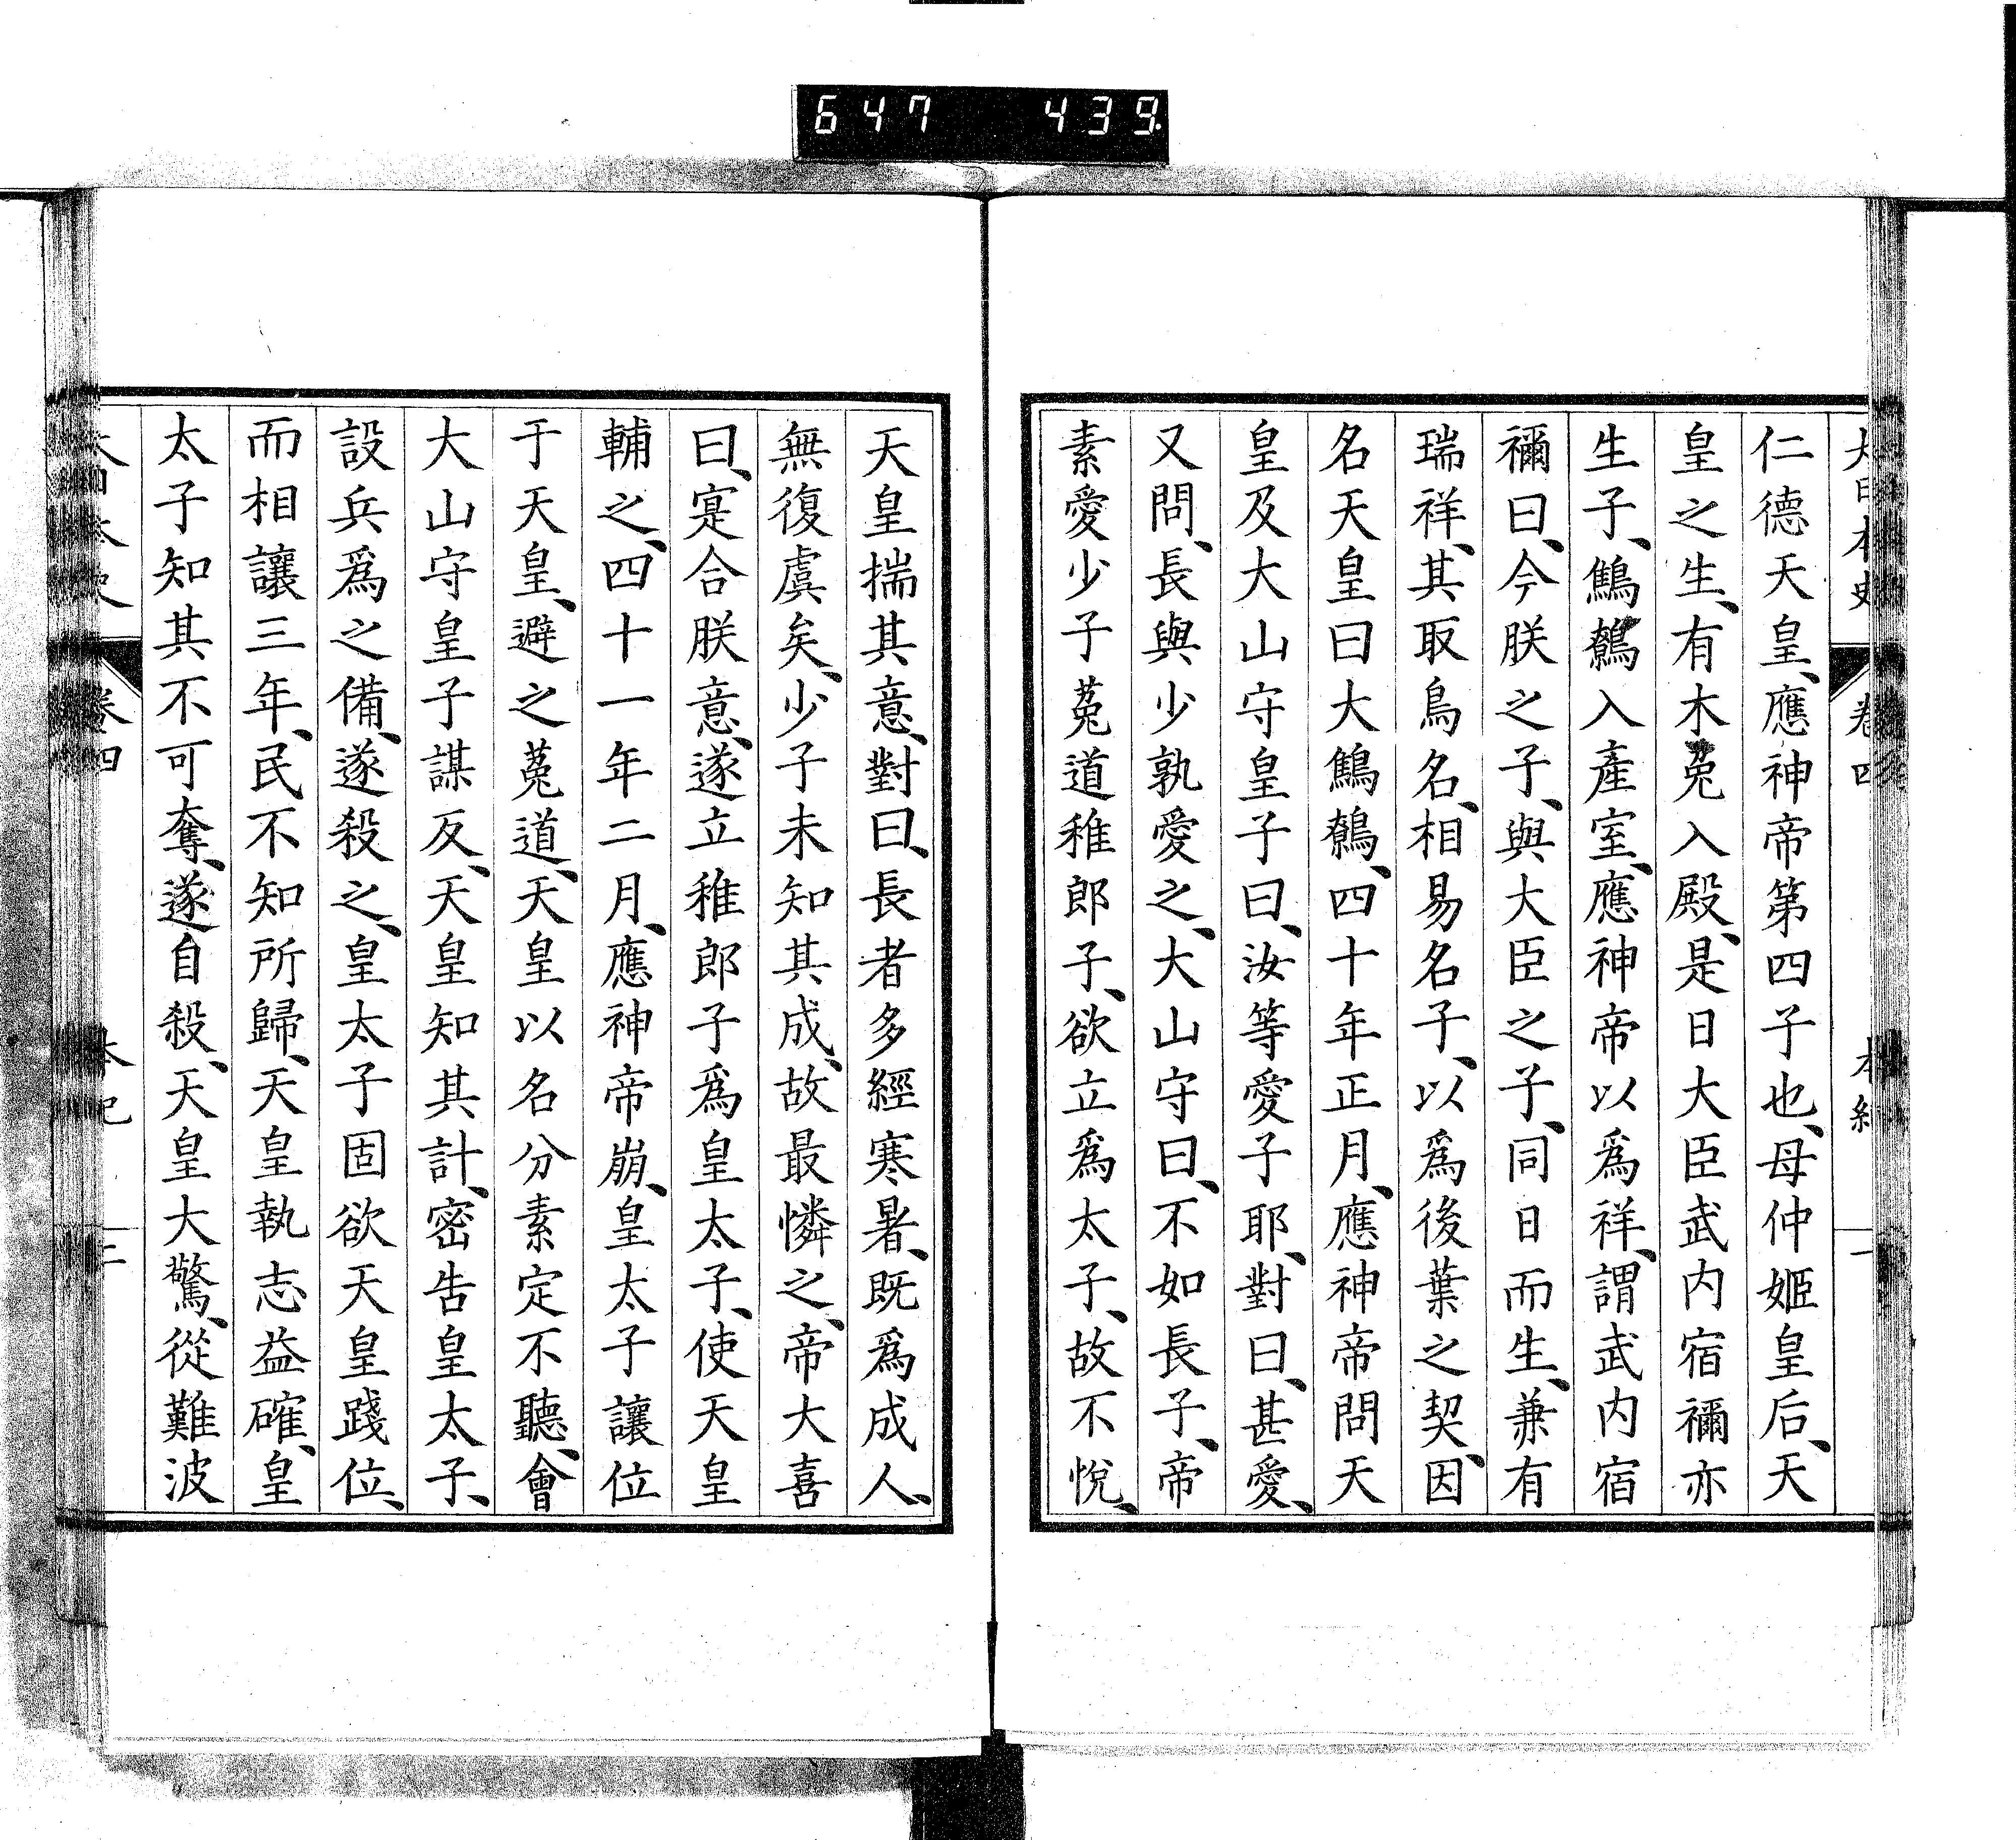 647 439
大日本史 卷四 本紀 一
仁德天皇、應神帝第四子也、母仲姬皇后、天
皇之生、有木菟入殿、是日大臣武内宿禰亦
生子、鷦鷯入產室、應神帝以爲祥、謂武内宿
禰曰、今朕之子、與大臣之子、同日而生、兼有
瑞祥、其取鳥名、相易名子、以爲後葉之契、因
名天皇曰大鷦鷯、四十年正月、應神帝問天
皇及大山守皇子曰、汝等愛子耶、對曰、甚愛、
又問、長與少孰愛之、大山守曰、不如長子、帝
素愛少子菟道稚郎子、欲立爲太子、故不悅、
天皇揣其意、對曰、長者多經寒暑、既爲成人、
無復虞矣、少子未知其成、故最憐之、帝大喜
曰、寔合朕意、遂立稚郎子爲皇太子、使天皇
輔之、四十一年二月、應神帝崩、皇太子讓位
于天皇、避之菟道、天皇以名分素定不聽、會
大山守皇子謀反、天皇知其計、密告皇太子、
設兵爲之備、遂殺之、皇太子固欲天皇踐位、
而相讓三年、民不知所歸、天皇執志益確、皇
太子知其不可奪、遂自殺、天皇大驚、從難波
大日本史 卷四 本紀 二